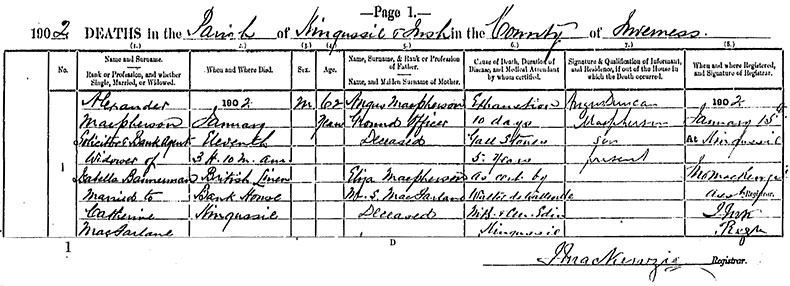 —Page 1.—
1902 DEATHS in the Parish of Kingussie & Insh in the County of Inverness.
(1.) (2.) (3.) (4.) (5.) (6.) (7.) (8.)
No.
Name and Surname.
Rank or Profession, and whether Single, Married, or Widowed.
When and Where Died.
Sex.
Age.
Name, Surname, & Rank or Profession of Father.
Name, and Maiden Surname of Mother.
Cause of Death, Duration of Disease, and Medical Attendant by whom certified.
Signature & Qualification of Informant, and Residence, if out of the House in which the Death occurred.
When and where Registered, and Signature of Registrar.
1
Alexander
Macpherson
Solicitor & Bank Agent
Widower of
Isabella Bannerman
Married to
Catherine
MacFarlane
1902
January
Eleventh
3 h. 10 m. am.
British Linen
Bank House
Kingussie
M
62
Years
Angus Macpherson
Ground Officer
Deceased
Eliza Macpherson
M. S. MacFarlane
Deceased
Exhaustion
10 days
Gall Stones
5 Years
as cert by
Walter de Watteville
Kingussie
Angus Duncan
Macpherson
son
present
1902
January 15
At Kingussie
Tho Mackenzie
Asst Registrar
1 D
J Mackenzie Registrar.